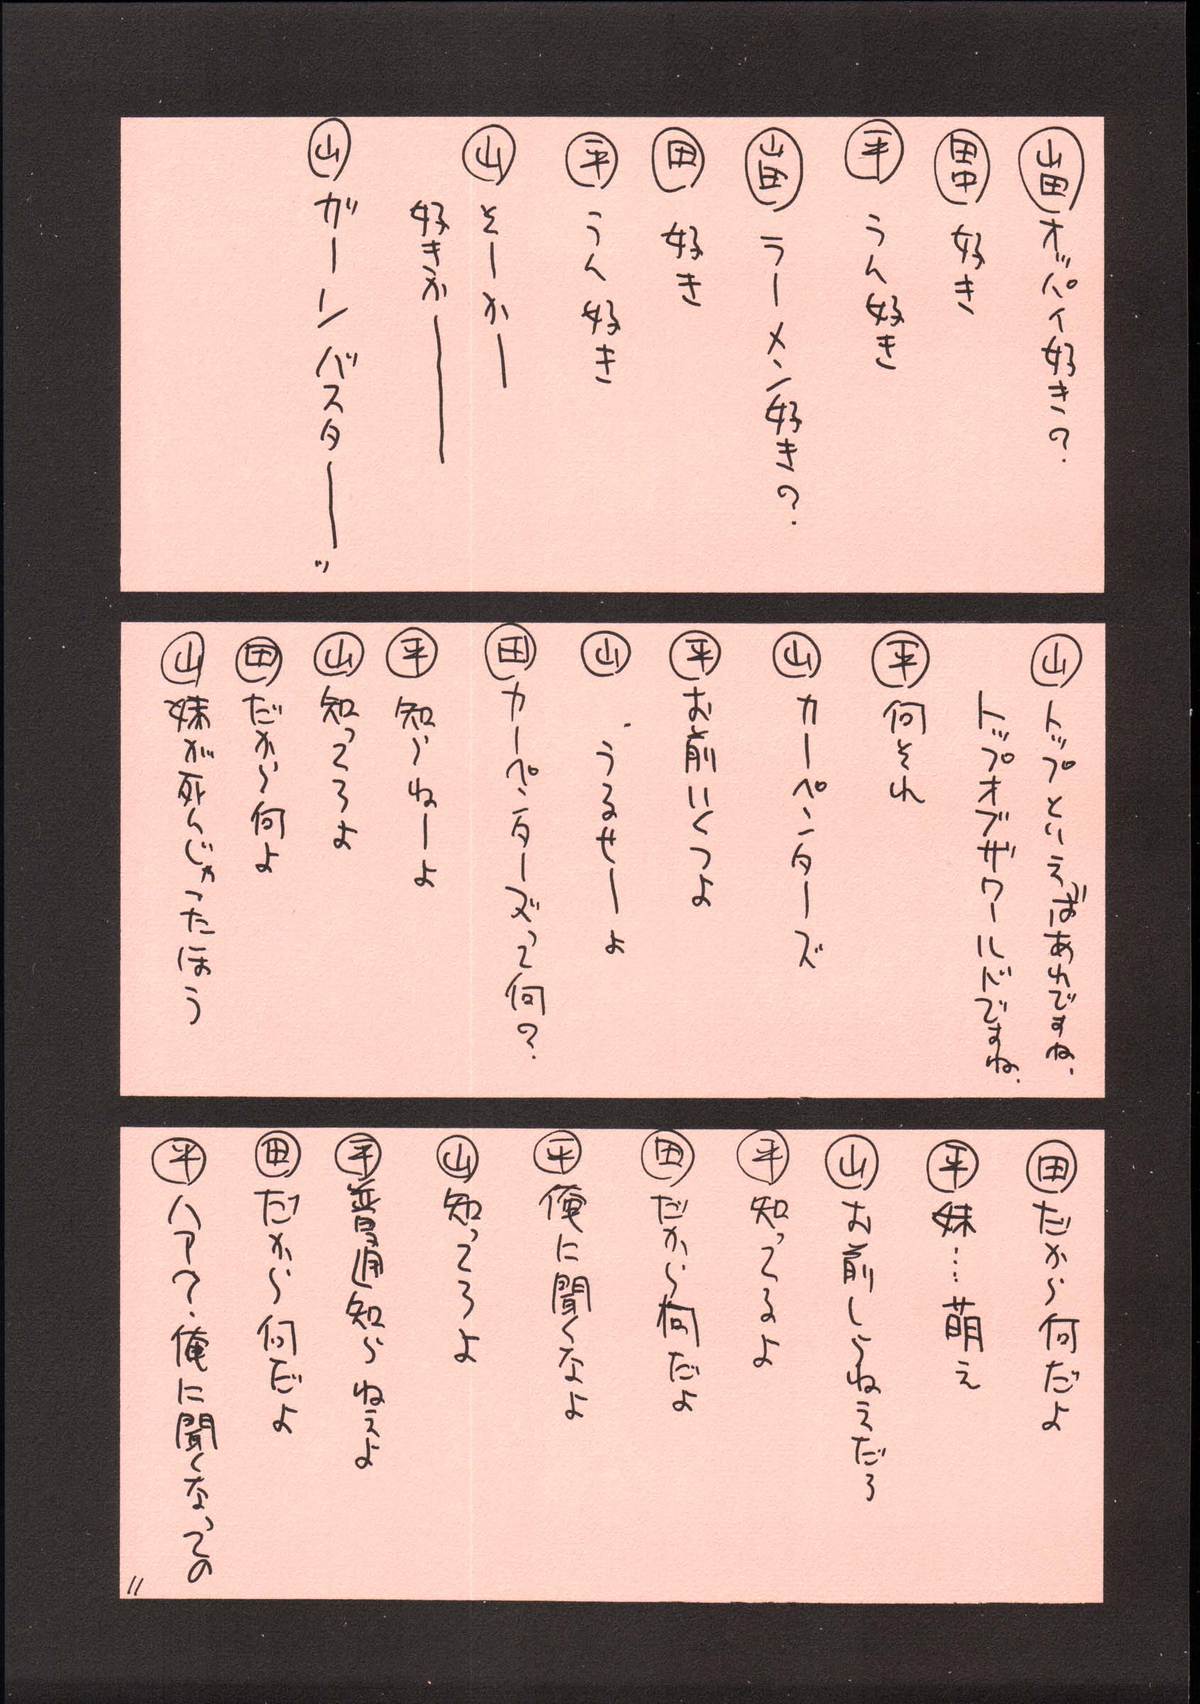 山田 オッパイ好き?
田中 好き
平 うん好き
山田 ラーメン好き?
田 好き
平 うん好き
山 そーかー
好きかー
山 ガーンバスターーッ
山 トップといえばあれですね、
トップオブザワールドですね、
平 何それ
山 カーペンターズ
平 お前いくつよ
山 うるせーよ
田 カーペンターズって何?
平 知らねーよ
山 知ってろよ
田 だから何よ
山 妹が死んじゃったほう
田 だから何だよ
平 妹…萌え
山 お前しらねえだろ
平 知ってるよ
田 だから何だよ
平 俺に聞くなよ
山 知ってろよ
平 普通知らねえよ
田 だから何だよ
平 ハア?俺に聞くなっての
11